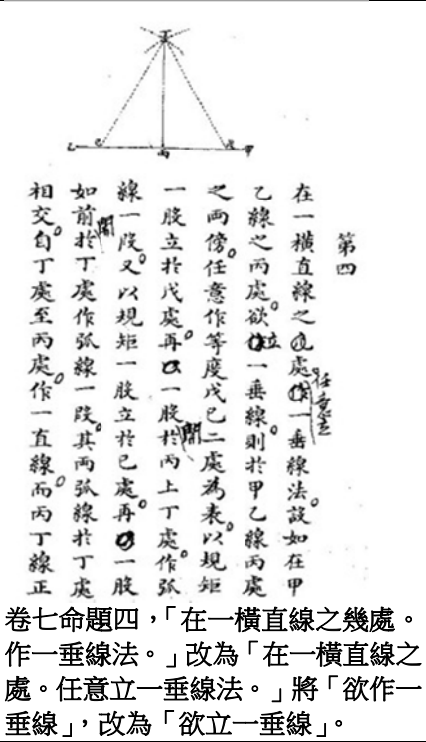 丁
乙 丙 甲
第四
在一橫直線之處任意立一垂線法。設如在甲
乙線之丙處。欲立一垂線。則於甲乙線丙處
之兩傍。任意作等度戊己二處為表。以規矩
一股立於戊處。再一股開於丙上丁處。作弧
線一段。又以規矩一股立於己處。再一股
如前開於丁處作弧線一段。其兩弧線於丁處
相交。自丁處至丙處。作一直線。而丙丁線正
卷七命題四，「在一橫直線之幾處。
作一垂線法。」改為「在一橫直線之
處。任意立一垂線法。」將「欲作一
垂線」，改為「欲立一垂線」。